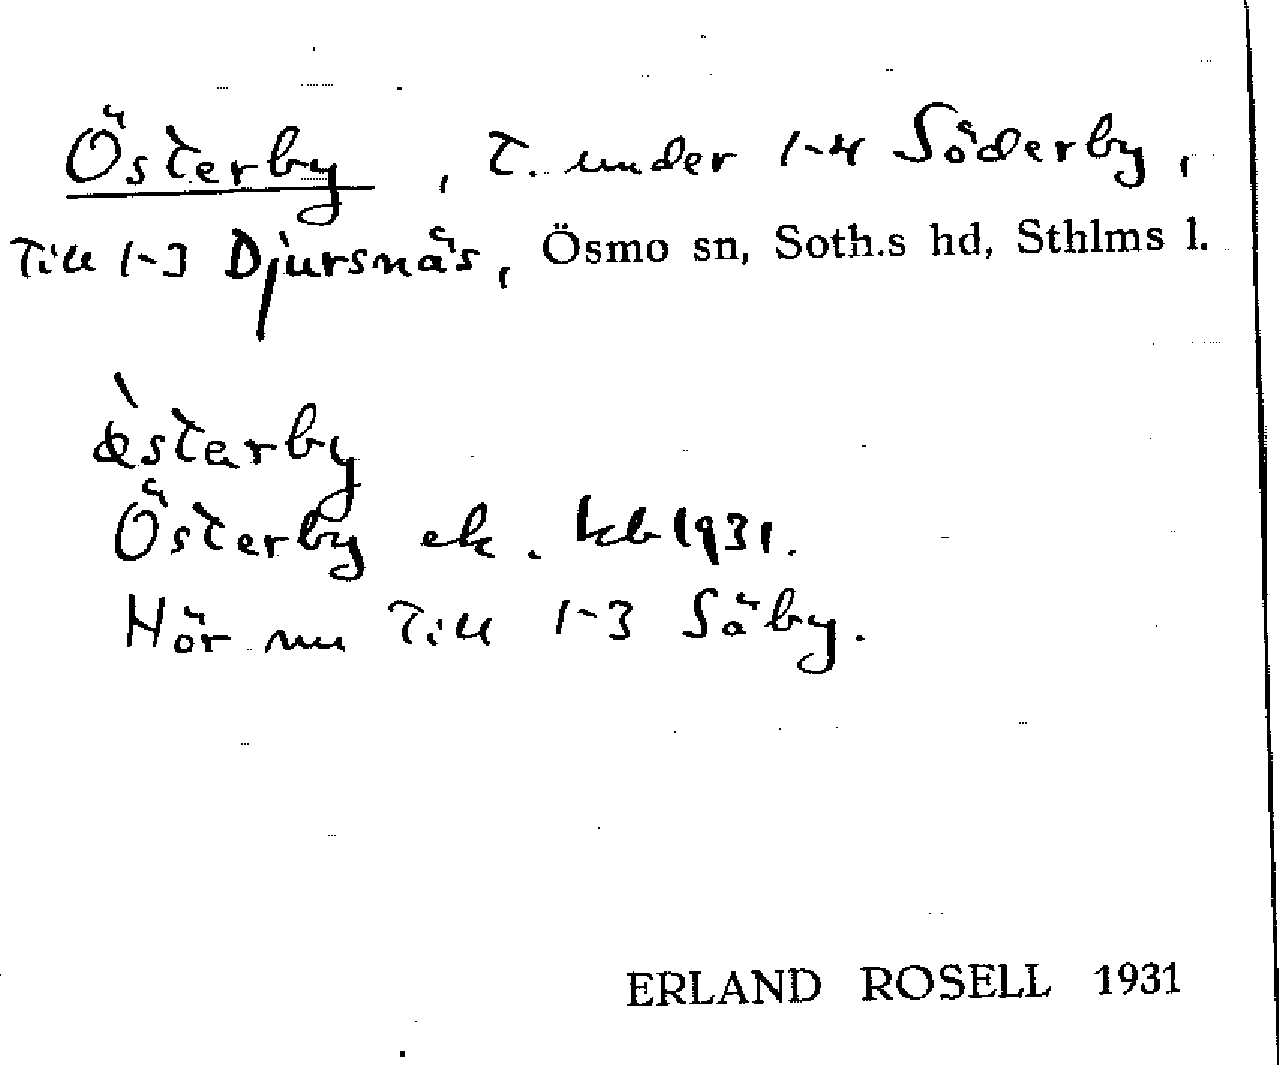 Österby, T. under 1-4 Söderby,
Till 1-3 Djursnäs, Ösmo sn, Soth.s hd, Sthlms l.
œ̀starby
Österby ek. kb 1931.
Hör nu Till 1-3 Säby.
ERLAND ROSELL 1931